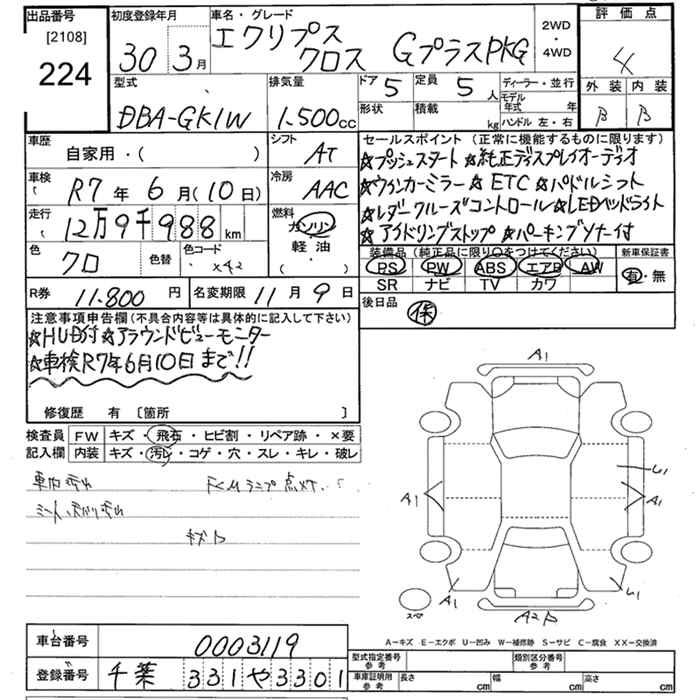 出品番号 初度登録年月 車名・グレード 2WD・4WD 評価点
[2108]
224
30年 3月
エクリプス
クロス GプラスPKG
4
外装 内装
B B
型式 排気量 ドア 定員 ディーラー・並行
DBA-GK1W 1.500cc 5 5人
形状 積載 kg モデル年式 年
ハンドル 左・右
車歴 自家用・( ) シフト AT
車検 R7年6月(10日) 冷房 AAC
走行 12万9千988km 燃料 ガソリン 軽油 ・( )
色 クロ 色替 色コード X42
R券 11.800円 名変期限 11月9日
セールスポイント(正常に機能するものに限ります)
☆プッシュスタート ☆純正ディスプレイオーディオ
☆ウインカーミラー ☆ETC ☆パドルシフト
☆レダークルーズコントロール ☆LEDヘッドライト
☆アイドリングストップ ☆パーキングソナー付
装備品(純正品に限り○をつけてください) 新車保証書
PS PW ABS エアB AW 有・無
SR ナビ TV カワ
後日品 保
注意事項申告欄(不具合内容等は具体的に記入して下さい)
☆HUD付 ☆アラウンドビューモニター
☆車検R7年6月10日まで!!
修復歴 有 [箇所 ]
検査員 FW キズ・飛石・ヒビ割・リペア跡・×要
記入欄 内装 キズ・汚レ・コゲ・穴・スレ・キレ・破レ
点灯
キズ
A1
A1
U1
A1
A1
U1
A2
スペ
A-キズ E-エクボ U-凹み W-補修跡 S-サビ C-腐食 XX-交換済
車台番号 0003119
登録番号 千葉 331や3301
型式指定番号 参考 類別区分番号 参考
車庫証明用 参考 長さ cm 幅 cm 高さ cm